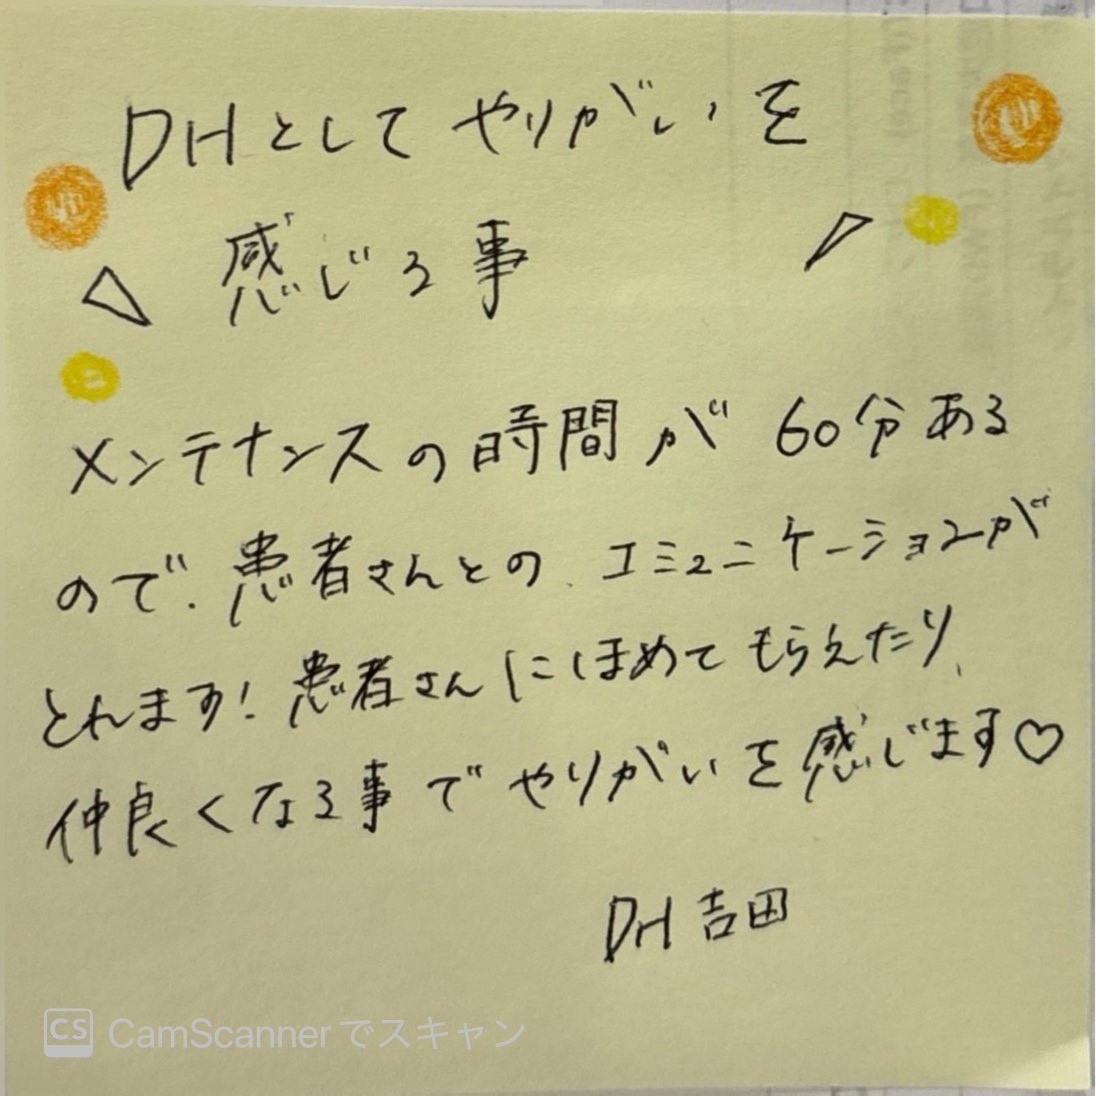 DHとしてやりがいを
感じる事
メンテナンスの時間が60分ある
ので、患者さんとのコミュニケーションが
とれます!患者さんにほめてもらえたり、
仲良くなる事でやりがいを感じます♡
DH吉田
CS CamScannerでスキャン